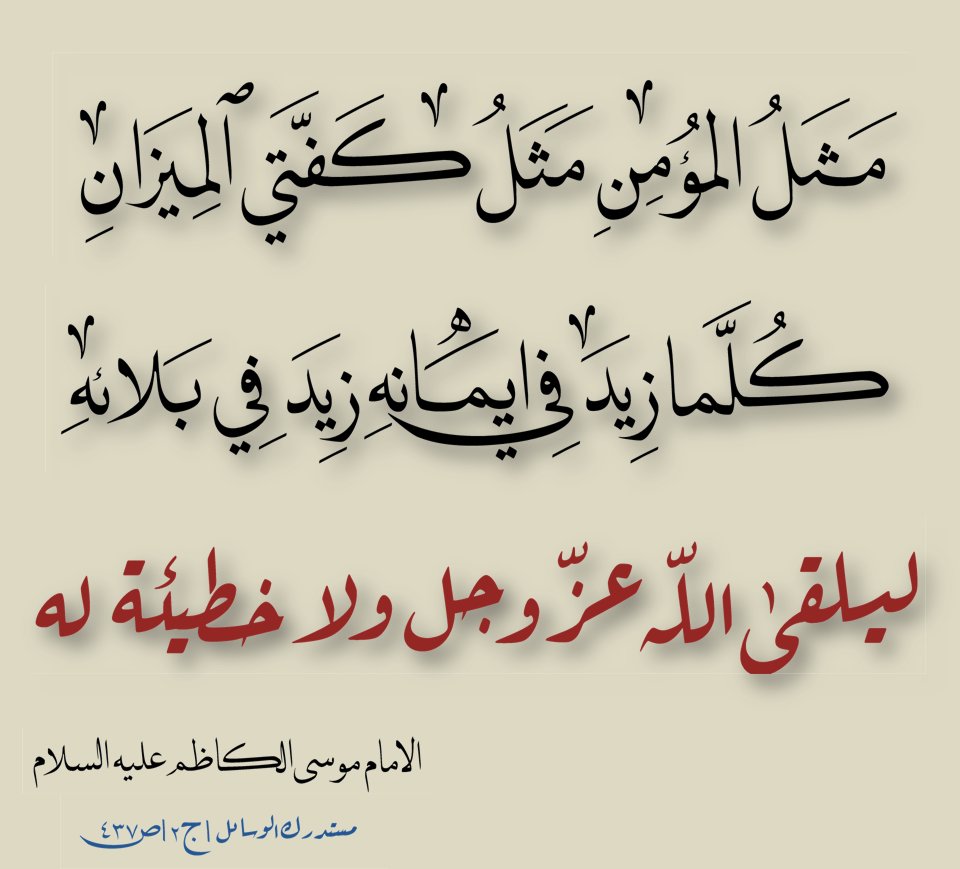 مَثَلُ المؤُمِنِ مَثَلُ كَفَّتَيِ ٱلمِيَزَانِ
كُلَّمَا زِيدَ فِي ايمَانهِ زِيدَ فِي بَلائهِ
ليلقىٰ اللّٰه عزّ وجل ولا خطيئة له
الامام موسى الكاظم عليه السلام
مستدرك الوسائل | ج٢ | ص٤٣٧